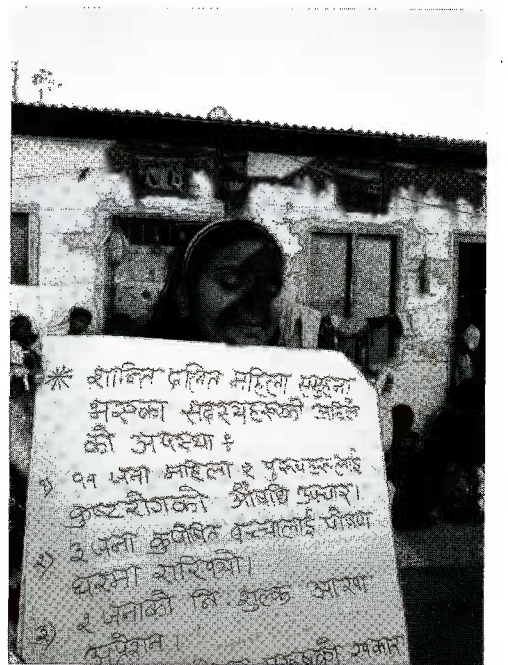 * शान्ति दलित महिला समुहमा
भएका सदस्यहरुको अहिले
को अवस्था :
१) ११ जना महिला र पुरुषहरुलाई
कुष्टरोगको औषधि उपचार।
२) ३ जना कुपोषित बच्चालाई पोषण
घरमा राखियो।
३) २ जनाको नि शुल्क आङ
अपरेशन।